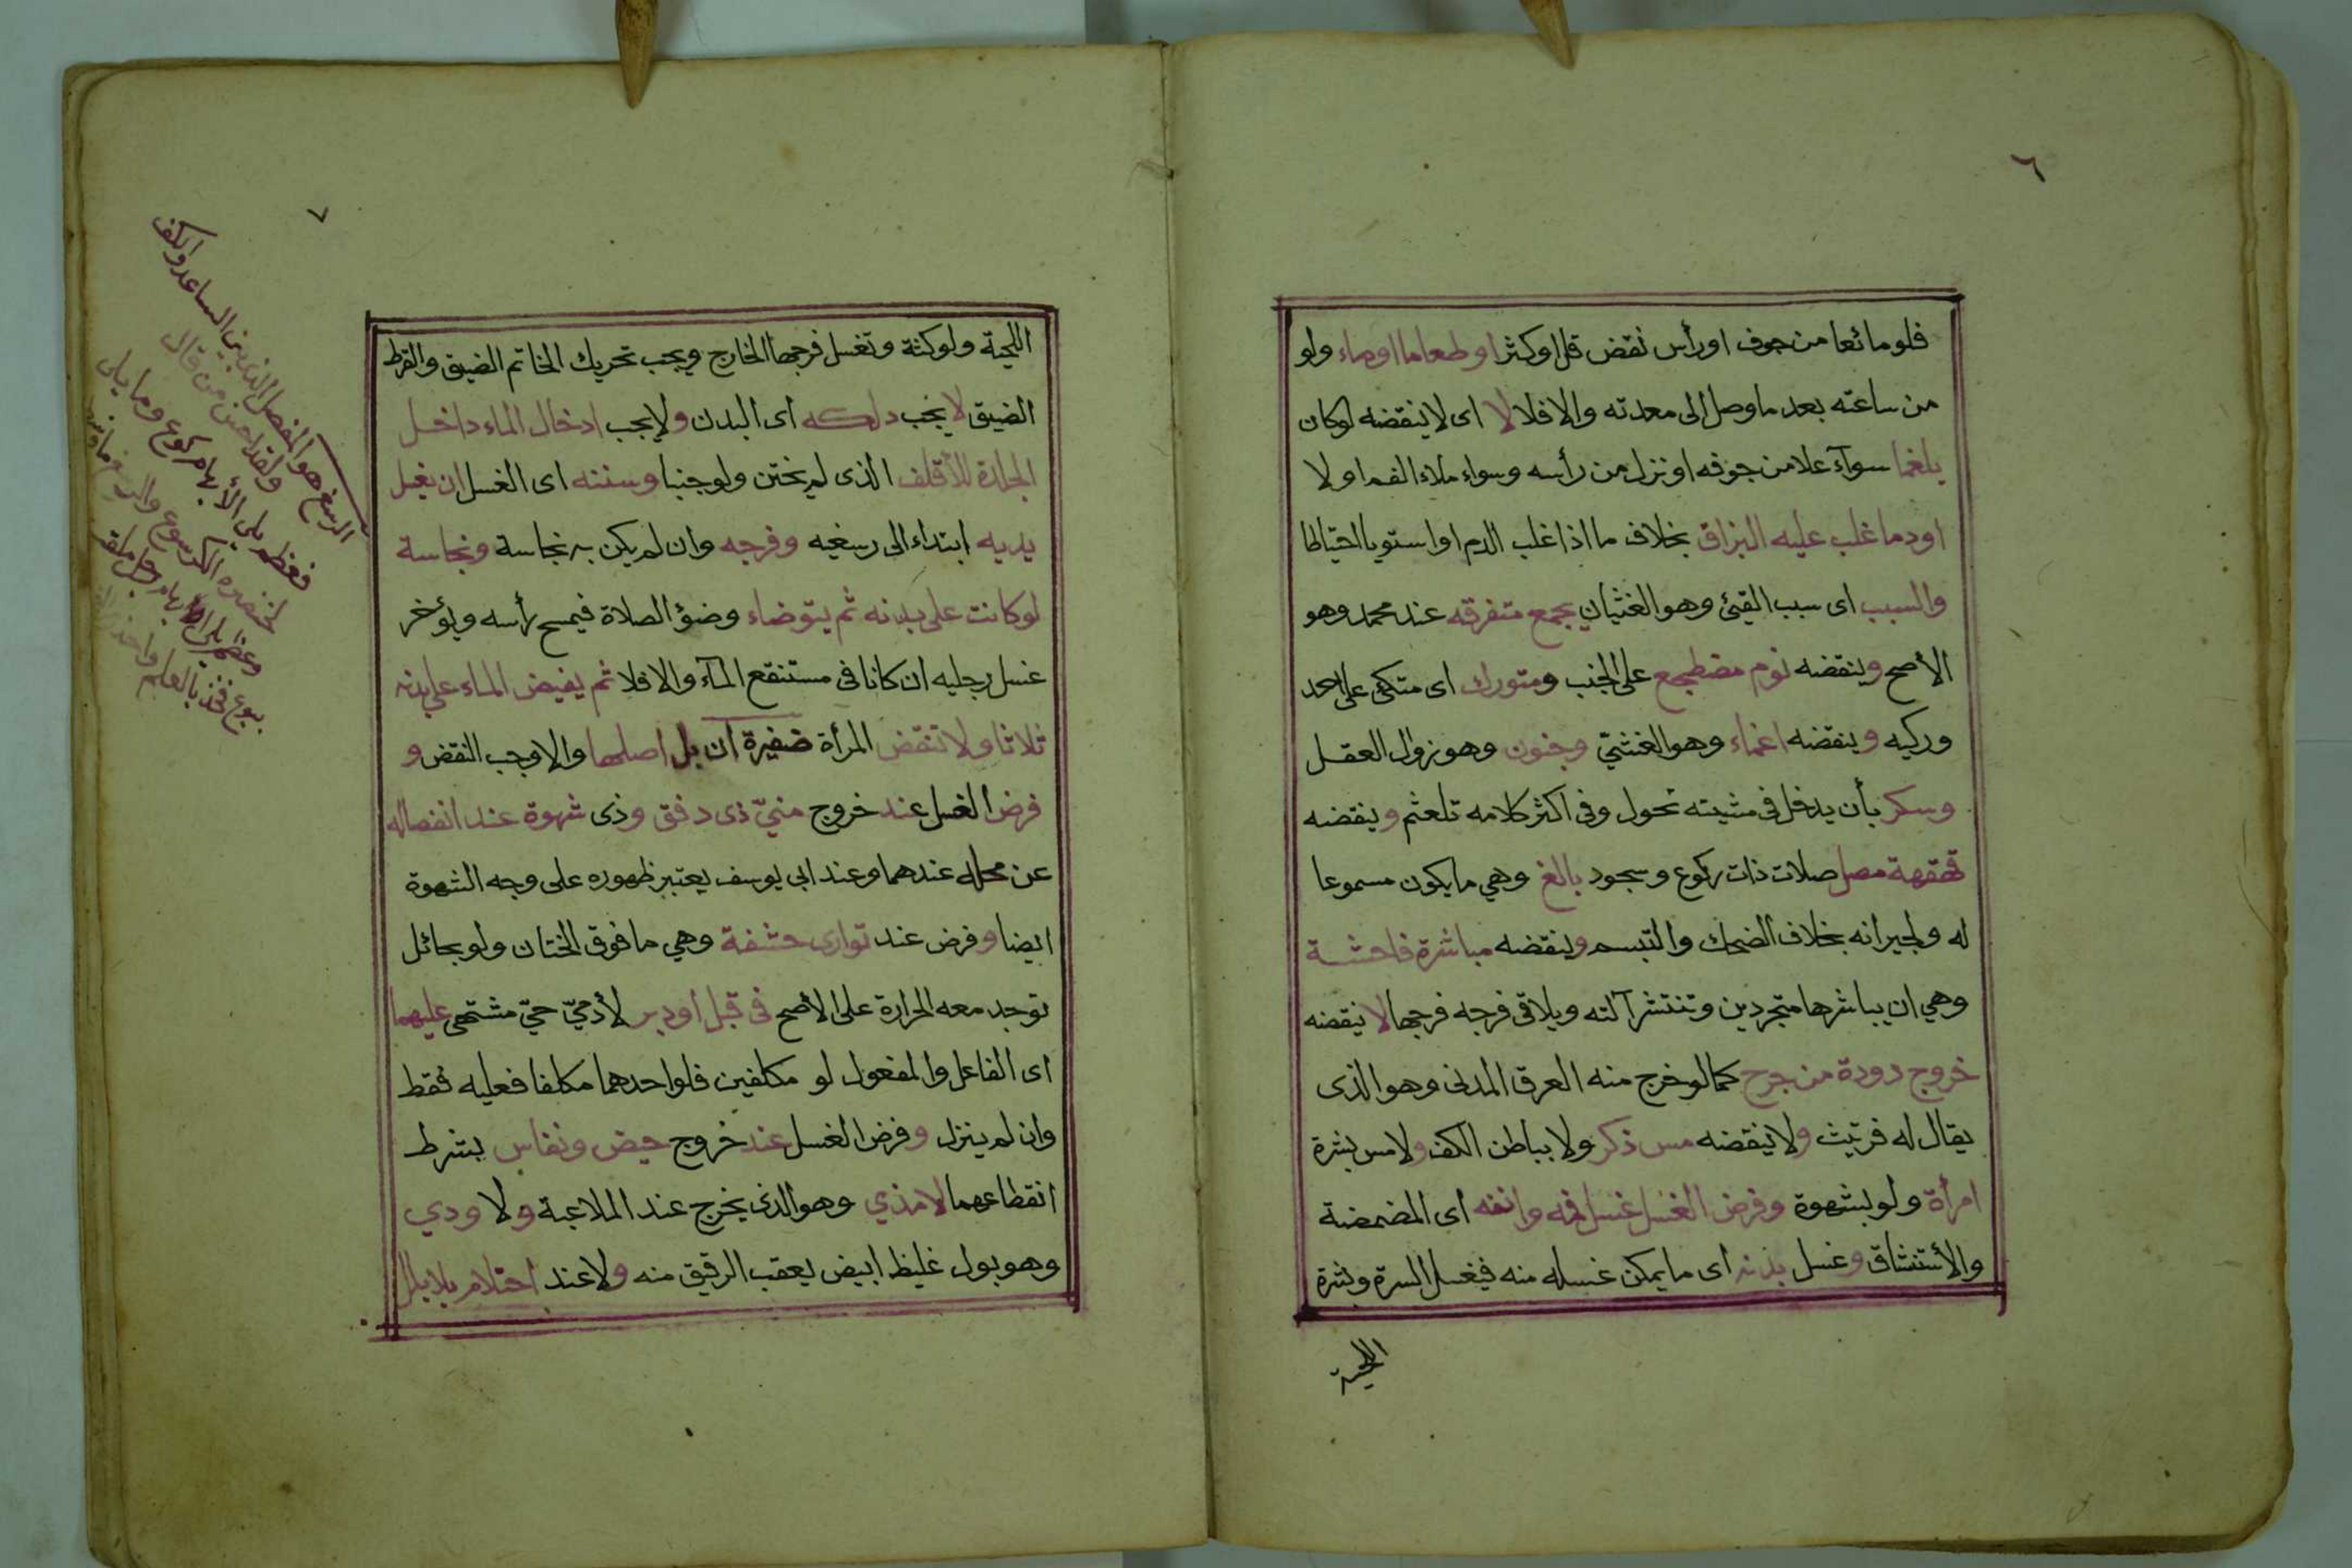 ٦
فلو مائعا من جوف او رأس نقض قل او كثر او طعاما او ماء ولو
من ساعته بعد ما وصل الى معدته والا فلا لا اى لا ينقضه لو كان
بلغما سوآء علا من جوفه او نزل من رأسه وسواء ملاء الفم او لا
او دما غلب عليه البزاق بخلاف ما اذا غلب الدم او استويا احتياطا
والسبب اى سبب القيئ وهو الغثيان يجمع متفرقه عند محمد وهو
الأصح وينقضه نوم مضطجع على الجنب ومتورك اى متكى على احد
وركيه وينقضه اغماء وهو الغشيّ وجنون وهو زوال العقل
وسكر بأن يدخل فى مشيته تحول وفى اكثر كلامه تلعثم وينقضه
قهقهة مصل صلات ذات ركوع وسجود بالغ وهي ما يكون مسموعا
له ولجيرانه بخلاف الضحك والتبسم وينقضه مباشرة فاحشة
وهي ان يباشرها متجردين وتنتشر آلته ويلاقى فرجه فرجها لا ينقضه
خروج دودة من جرح كما لو خرج منه العرق المدنى وهو الذى
يقال له فرتيت ولا ينقضه مس ذكر ولا بباطن الكف ولا مس بشرة
امرأة ولو بشهوة وفرض الغسل غسل فمه وانفه اى المضمضة
والأستنشاق وغسل بدنه اى ما يمكن غسله منه فيغسل السرة وبشرة
اللحية
٧
اللحية ولو كثة وتغسل فرجها الخارج ويجب تحريك الخاتم الضيق والقرط
الضيق لا يجب دلكه اى البدن ولا يجب ادخال الماء داخل
الجلدة للأقلف الذى لم يختن ولو جنبا وسنته اى الغسل ان يغسل
يديه ابتداء الى رسغيه وفرجه وان لم يكن به نجاسة ونجاسة
لو كانت على بدنه ثم يتوضاء وضؤ الصلاة فيمسح رأسه ويؤخر
غسل رجليه ان كانا فى مستنقع المآء والا فلا ثم يفيض الماء على بدنه
ثلاثا ولا تنقض المرأة ضفيرة ان بل اصلها والا وجب النقض و
فرض الغسل عند خروج منيّ ذى دفق وذى شهوة عند انفصاله
عن محله عندهما وعند ابى يوسف يعتبر ظهوره على وجه الشهوة
ايضا وفرض عند توارى حشفة وهي ما فوق الختان ولو بحائل
توجد معه الحرارة على الأصح فى قبل او دبر لأدميّ حيّ مشتهى عليهما
اى الفاعل والمفعول لو مكلفين فلو احدهما مكلفا فعليه فقط
وان لم ينزل وفرض الغسل عند خروج حيض ونفاس بشرط
انقطاعهما لا مذي وهو الذى يخرج عند الملاعبة ولا ودي
وهو بول غليظ ابيض يعقب الرقيق منه ولا عند احتلام بلا بلل
الرسغ هو المفصل الذى بين الساعد والكف
ولقد احسن من قال
فعظم يلى الأبهام كوع وما يلى
لخنصره الكرسوع والرسغ ما وسط
وعظم يلى ابهام رجل ملقب
ببوع فخذ بالعلم واحذر